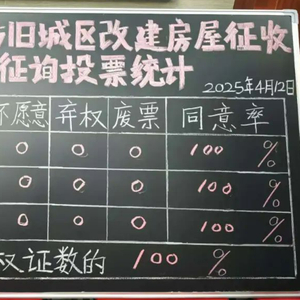 旧城区改建房屋征收
征询投票统计
2025年4月12日
不愿意 弃权 废票 同意率
0 0 0 100%
0 0 0 100%
0 0 0 100%
权证数的 100%